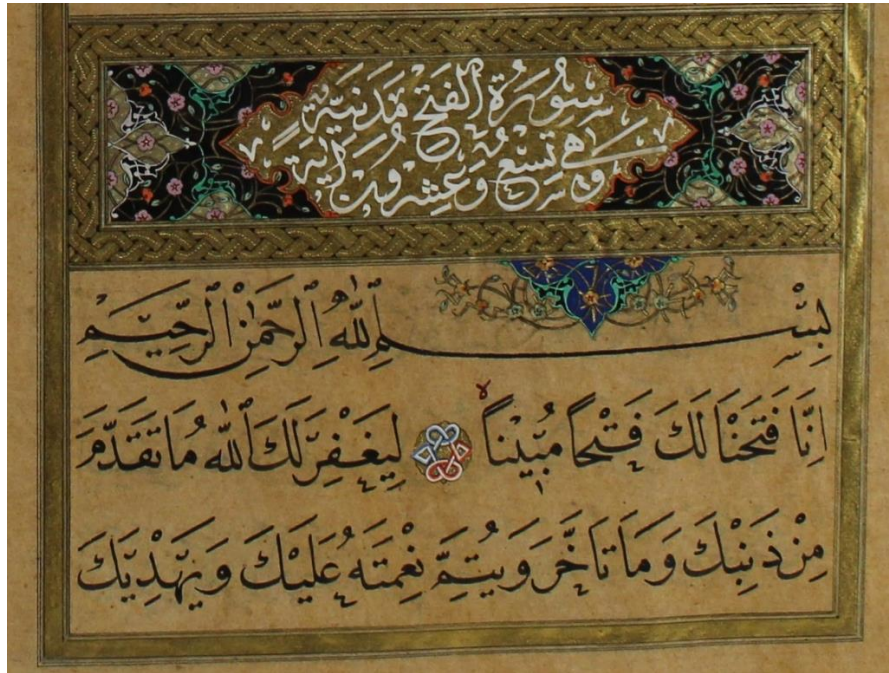 سُورَةُ الفَتْحِ مَدَنِيَّةٌ
وَهِيَ تِسْعٌ وَعِشْرُونَ آيَةً
بِسْمِ ٱللّٰهِ ٱلرَّحْمٰنِ ٱلرَّحِيمِ
اِنَّا فَتَحْنَا لَكَ فَتْحًا مُبِينًا ۙ لِيَغْفِرَ لَكَ ٱللّٰهُ مَا تَقَدَّمَ
مِنْ ذَنْبِكَ وَمَا تَاَخَّرَ وَيُتِمَّ نِعْمَتَهُ عَلَيْكَ وَيَهْدِيَكَ